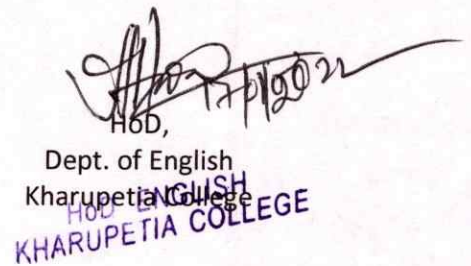 HoD,
Dept. of English
Kharupetia College
HoD ENGLISH
KHARUPETIA COLLEGE